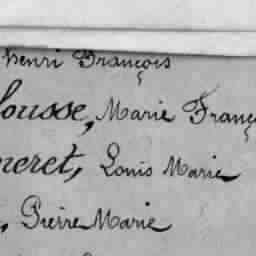 Henri François
ousse, Marie Franç
eret, Louis Marie
, Pierre Marie